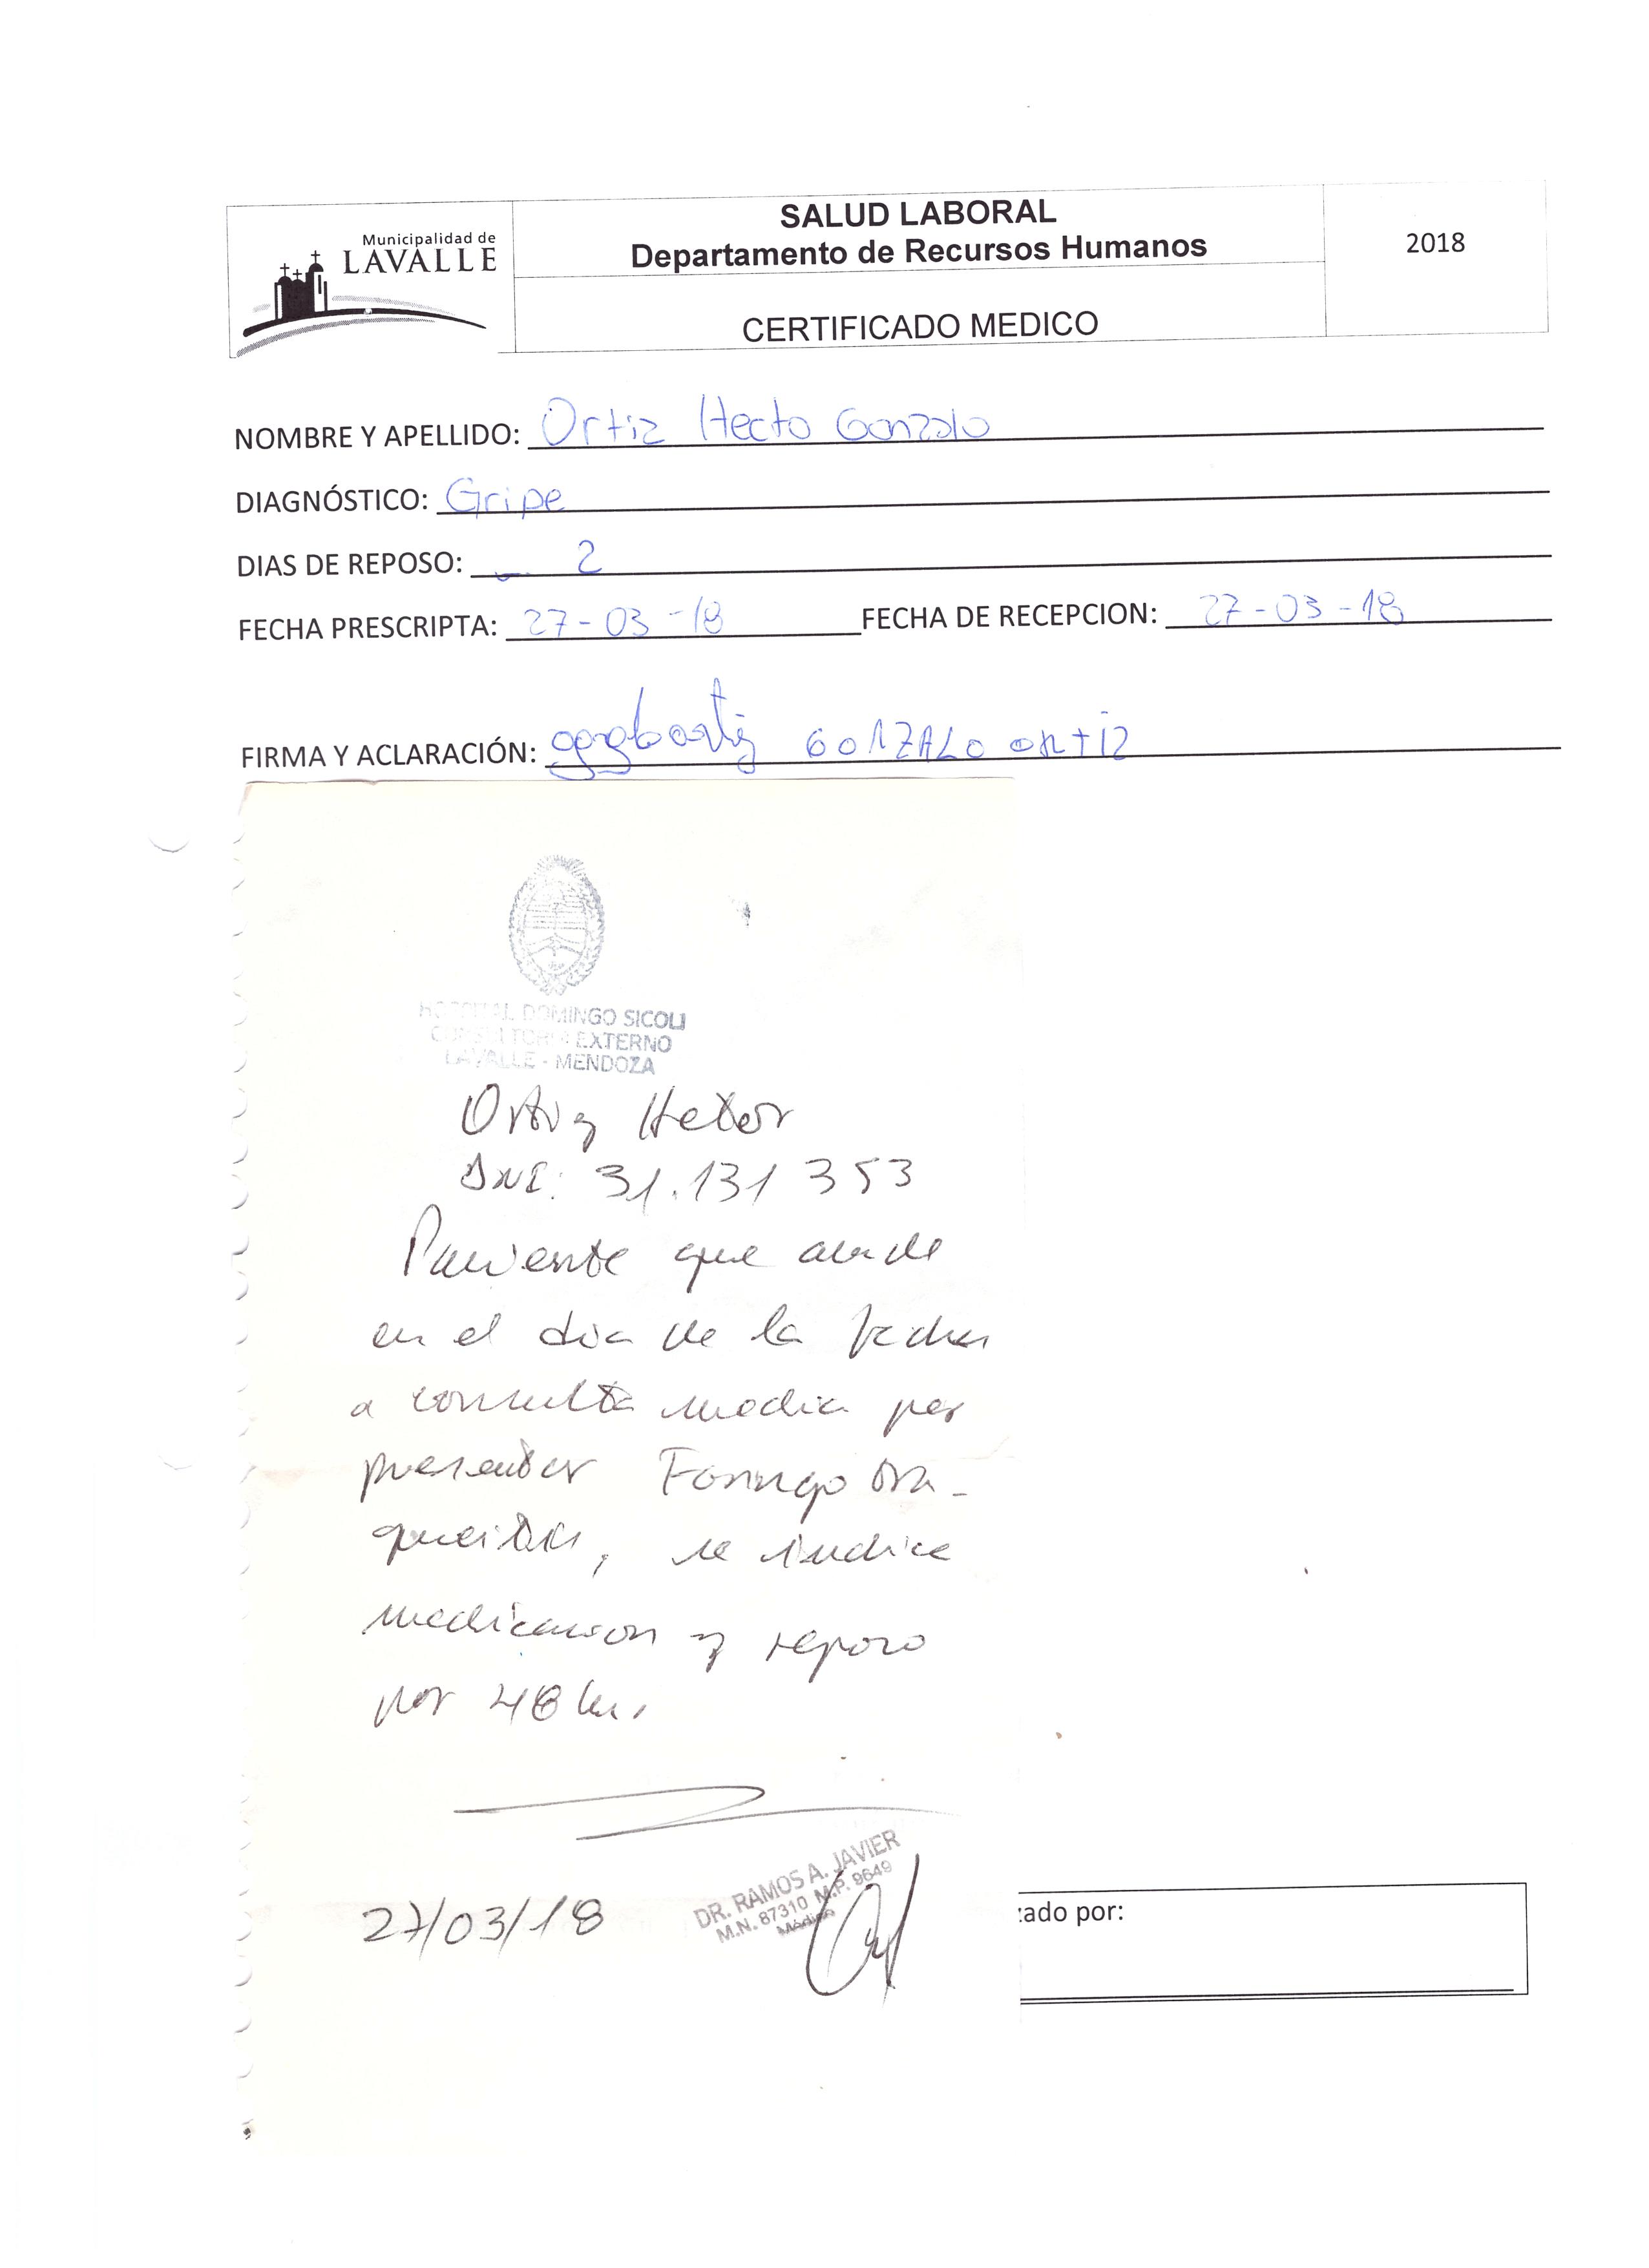 Municipalidad de
LAVALLE
SALUD LABORAL
Departamento de Recursos Humanos
CERTIFICADO MEDICO
2018
NOMBRE Y APELLIDO: Ortiz Hecto Gonzalo
DIAGNÓSTICO: Gripe
DIAS DE REPOSO: 2
FECHA PRESCRIPTA: 27-03-18 FECHA DE RECEPCION: 27-03-18
FIRMA Y ACLARACIÓN: GONZALO ORTIZ
HOSPITAL DOMINGO SICOLI
CONSULTORIO EXTERNO
LAVALLE - MENDOZA
Ortiz Hector
DNI: 31.131 353
Paciente que acude
en el dia de la fecha
a consulta medica por
presentar Faringo tra-
queitis, se indica
medicacion y reposo
por 48 hs.
27/03/18
DR. RAMOS A. JAVIER
M.N. 87310 M.P. 9649
Médico
zado por: